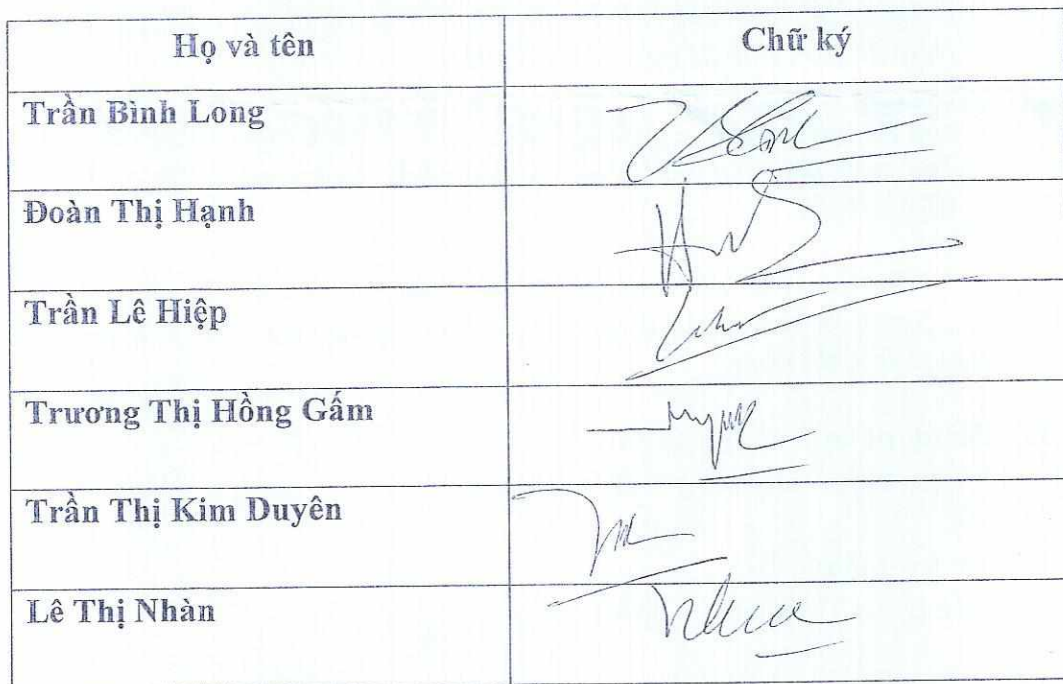 Họ và tên Chữ ký
Trần Bình Long
Đoàn Thị Hạnh
Trần Lê Hiệp
Trương Thị Hồng Gấm
Trần Thị Kim Duyên
Lê Thị Nhàn